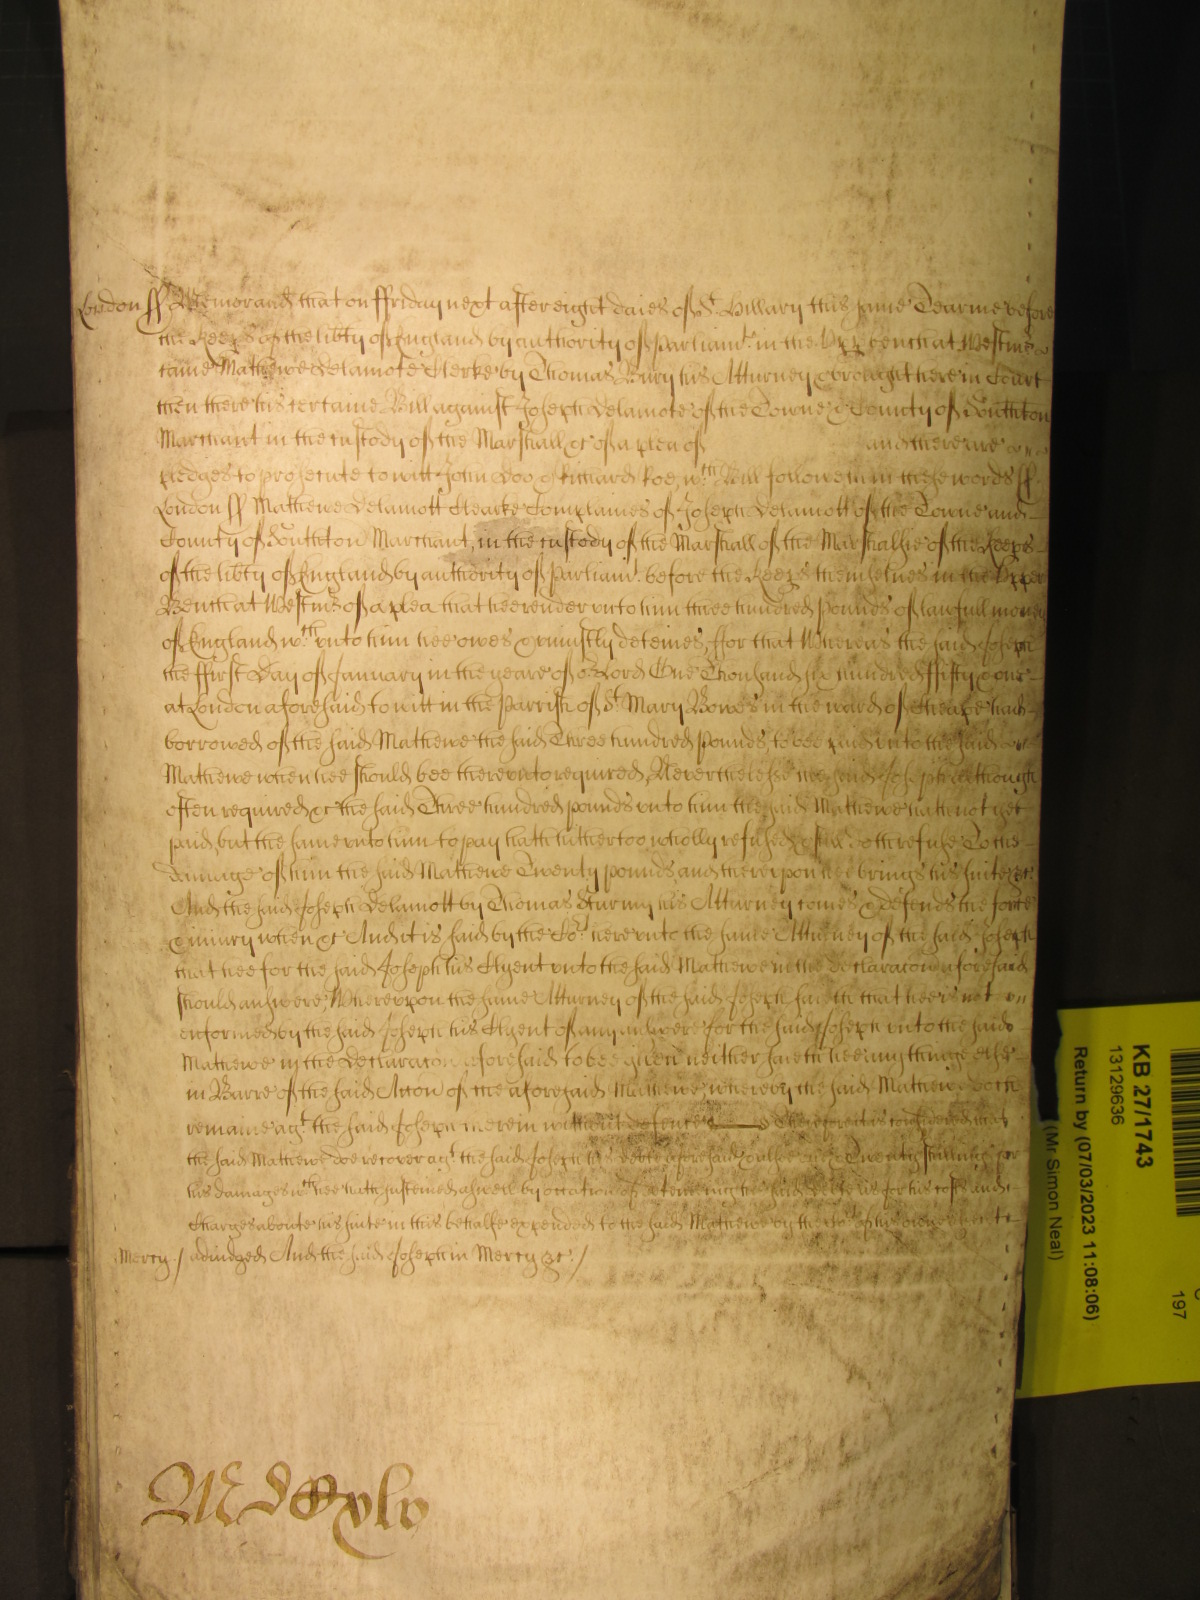 London ss Memorand that on ffriday next after eight daies of St. Hillary this same Tearme before
the Keeps of the libty of England by authority of Parliamt. in the Upp Bench at Westmr
came Mathewe Delamote Clerke by Thomas Bury his Atturney & brought here in Court
then there his certaine Bill against Joseph Delamote of the Towne & County of Southton
Marchant in the custody of the Marshall &c of a plea of and there are
pledges to prosecute to witt John Doo & Richard Roe, wth. Bill followeth in these words ss
London ss Mathewe Delamott Clearke Complaines of Joseph Delamott of the Towne and
County of Southton Marchant, in the custody of the Marshall of the Marshallsie of the Keeps
of the libty of England by authority of Parliamt. before the Keeps themselues in the Upper
Bench at Westmr of a plea that hee render vnto him three hundred pounds of lawfull money
of England wch vnto him hee owes & vniustly deteines, ffor that Whereas the said Joseph
the ffirst Day of January in the yeare of or Lord One Thousand six hundred ffifty & one
at London aforesaid to witt in the Parrish of St. Mary Bowe in the ward of Cheape had
borrowed of the said Mathewe the said Three hundred pounds, to bee paid vnto the said
Mathewe when hee should bee therevnto required, Neverthelesse the said Joseph although
often required &c the said Three hundred pounds vnto him the said Mathewe hath not yet
paid, but the same vnto him to pay hath hithertoo wholly refused & still doth refuse To the
damage of him the said Mathewe Twenty pounds, and therevpon hee brings his suite &c
And the said Joseph Delamott by Thomas Sturmy his Atturney comes & defends the force
& iniury when &c And it is said by the Cot. here vnto the same Atturney of the said Joseph
that hee for the said Joseph his Clyent vnto the said Mathewe in the declaracon aforesaid
should answere, Wherevpon the same Atturney of the said Joseph saieth that hee is not
enformed by the said Joseph his Clyent of any answere for the said Joseph vnto the said
Mathewe in the Declaracon aforesaid to bee given neither saieth hee any thinge else
in Barre of the said Accon of the aforesaid Mathewe, whereby the said Mathewe doth
remaine agt. the said Joseph therein without defence Therefore it is considered that
the said Mathewe doe recover agt. the said Joseph his debte aforesaid & alsoe Twenty shillings for
his damages wch hee hath susteined aswell by occation of deteineing the said debte as for his costs and
Charges aboute his suite in this behalfe expended to the said Mathewe by the Cot. of his
Mercy / adiudged And the said Joseph in Mercy &c. /
MdCCxlv
KB 27/1743
13129636
Return by (07/03/2023 11:08:06)
(Mr Simon Neal)
197